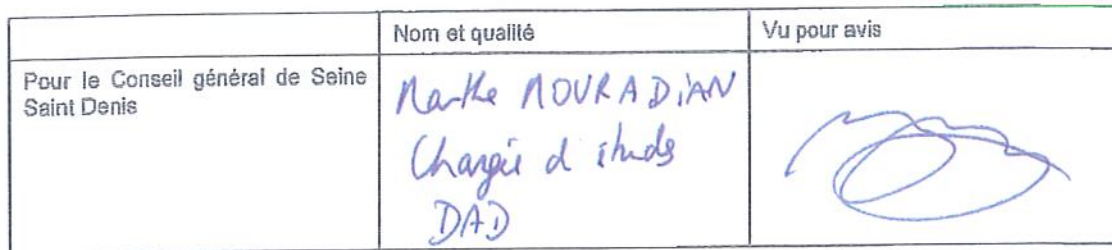 Nom et qualité
Vu pour avis
Pour le Conseil général de Seine
Saint Denis
Marthe MOURADIAN
Chargée d'études
DAD